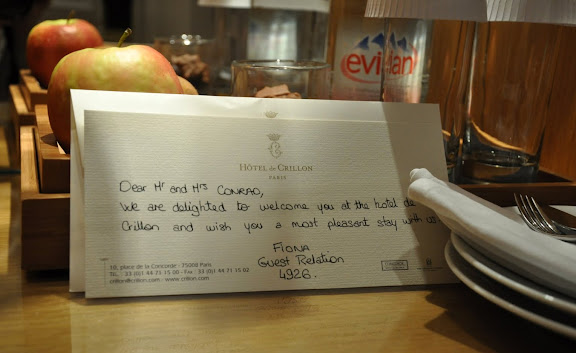 evian
HÔTEL DE CRILLON
PARIS
Dear Mr and Mrs CONRAD,
We are delighted to welcome you at the hotel de
Crillon and wish you a most pleasant stay with us
FIONA
Guest Relation
4926.
10, place de la Concorde - 75008 Paris
TÉL. : 33 (0)1 44 71 15 00 - Fax : 33 (0)1 44 71 15 02
crillon@crillon.com - www.crillon.com